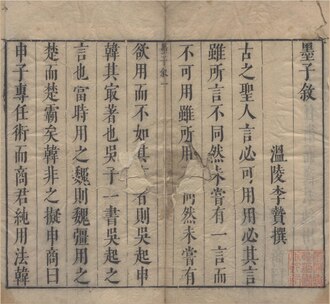 墨子敘
溫陵李贄撰
古之聖人言必可用用必其言
雖所言不同然未嘗有一言而
不可用雖所用不同然未嘗有
墨子敘 一
欲用而不如其言者則吳起申
韓其最著也吳子一書吳起之
言也當時用之魏則魏彊用之
楚而楚霸矣韓非之擬申商曰
申子專任術而商君純用法韓